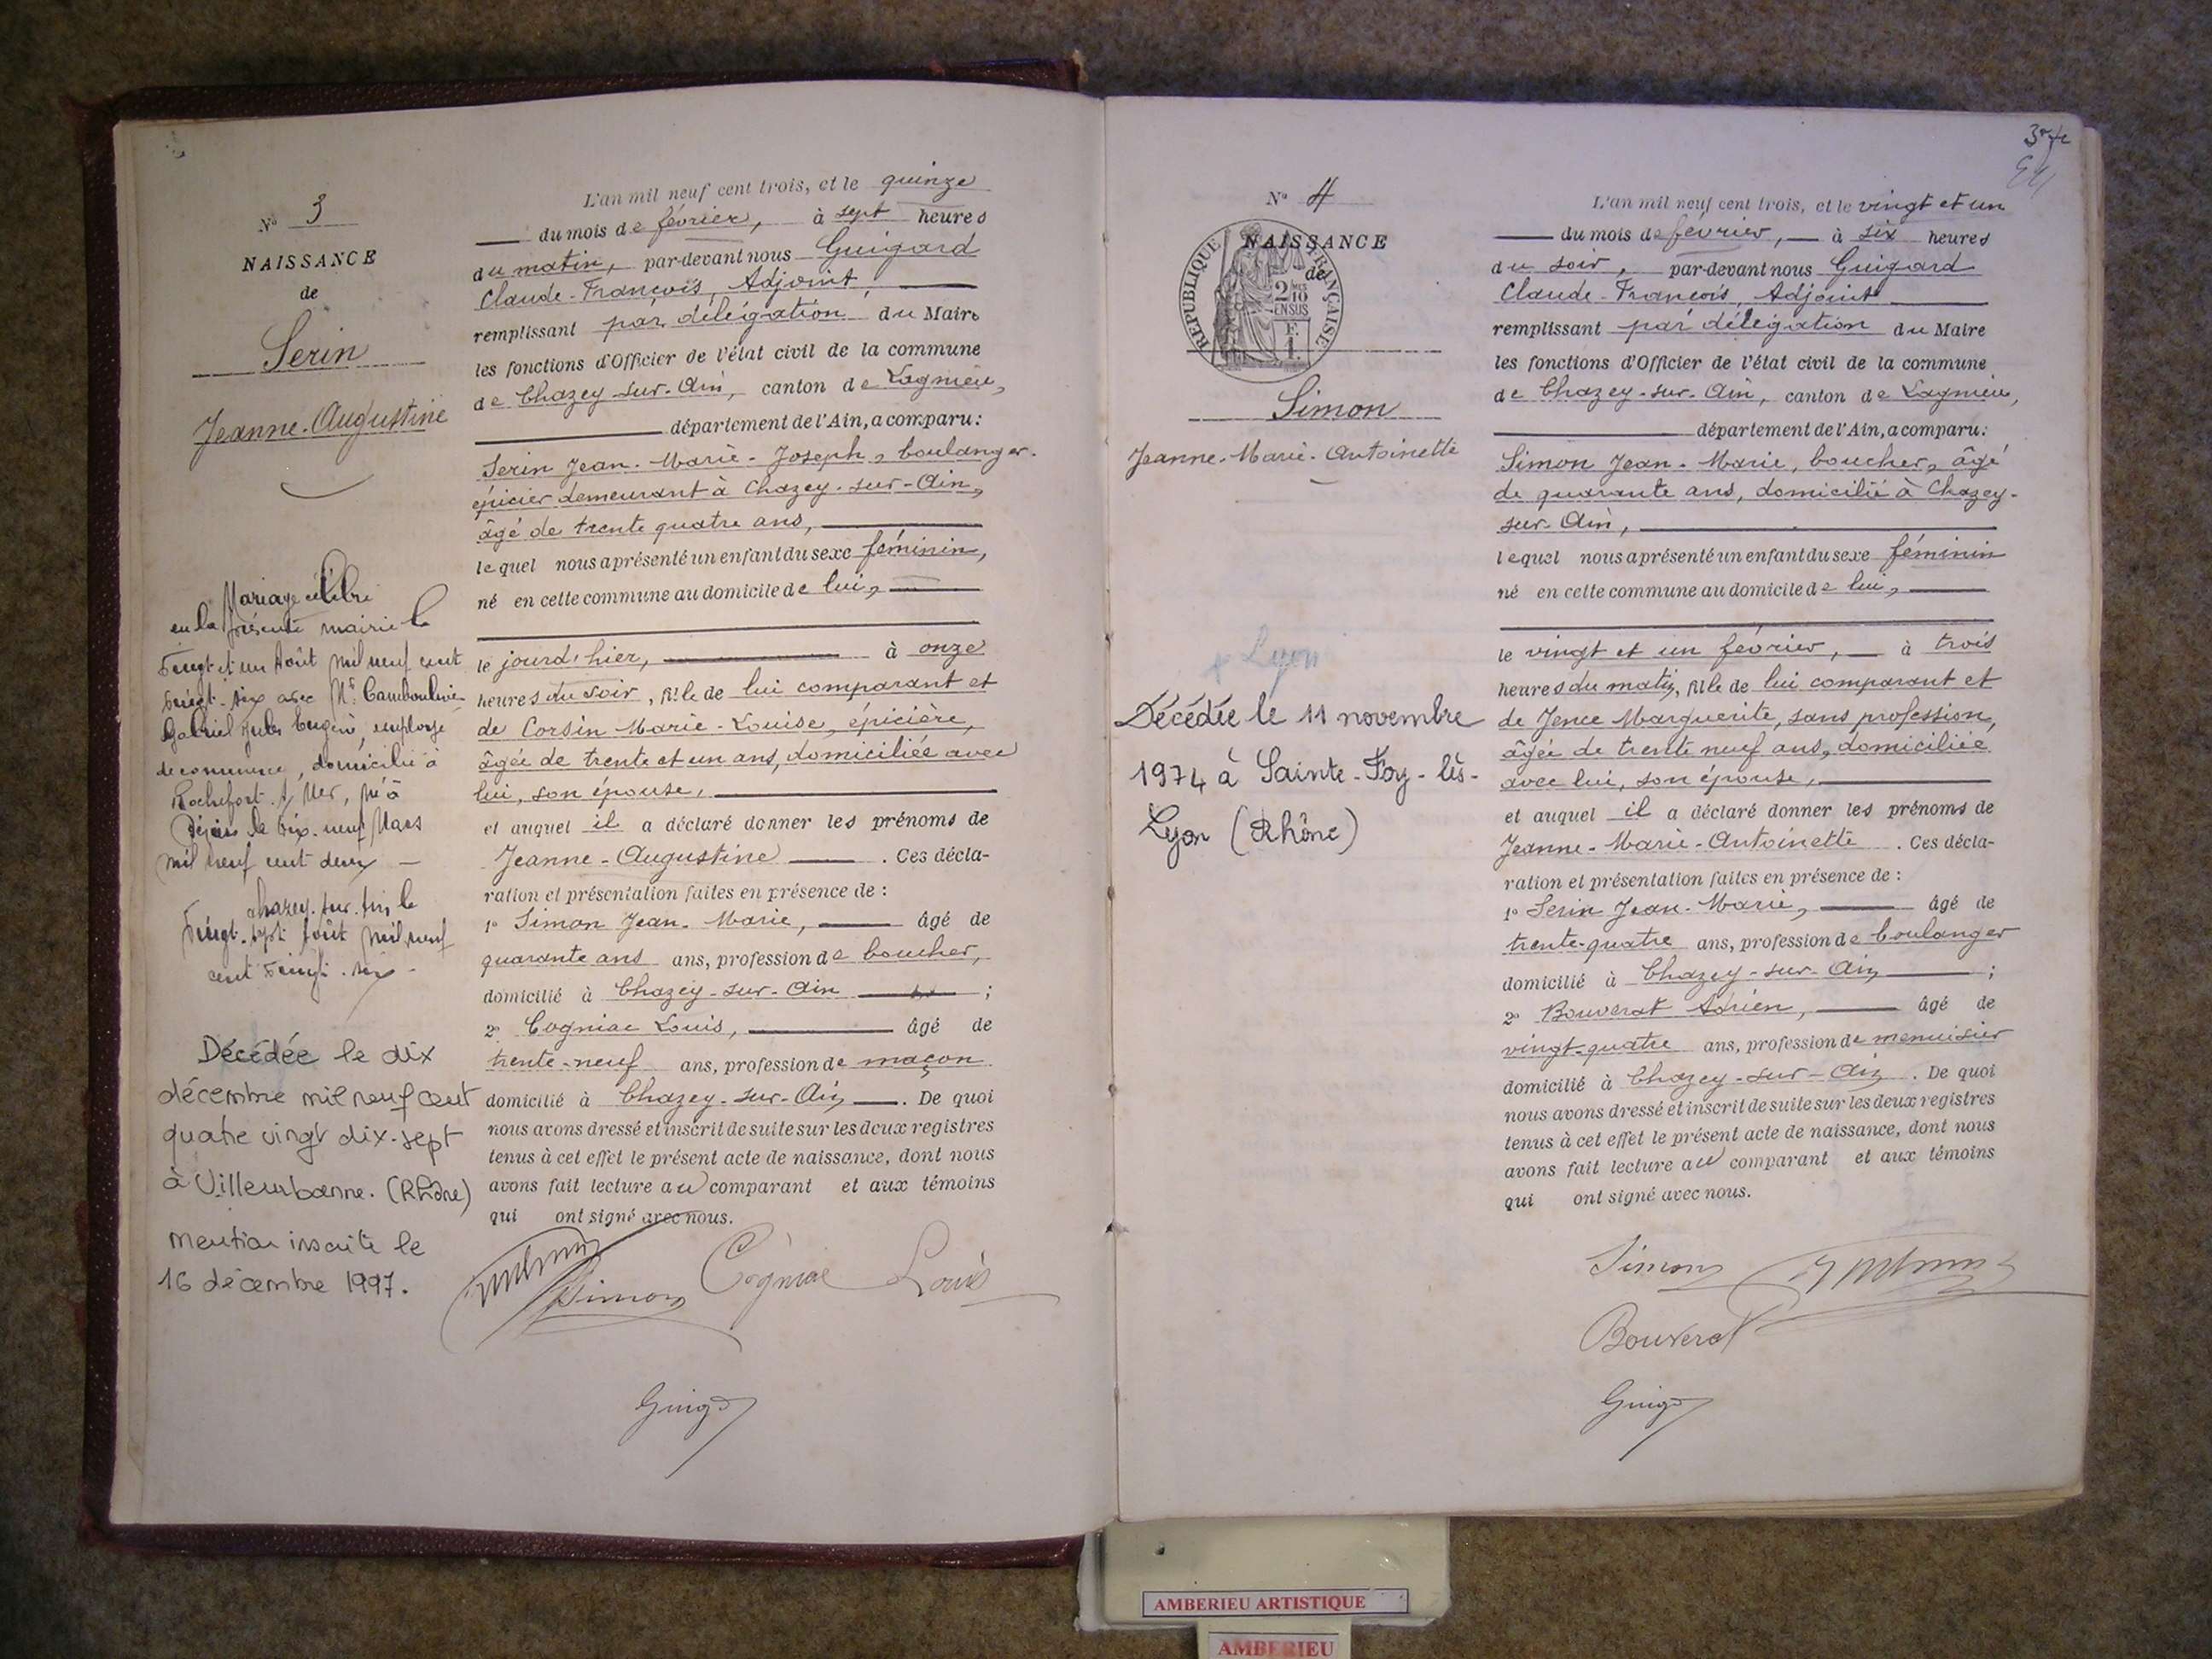 N° 3
NAISSANCE
de
Serin
Jeanne-Augustine
Mariage célébré
en la présente mairie le
vingt et un Août mil neuf cent
vingt-six avec Mr.
Gabriel Jules Eugène, employé
de commerce, domicilié à
Rochefort s/ Mer, né à
le dix-neuf Mars
mil neuf cent deux —
Chazey-sur-Ain, le
vingt-sept Août mil neuf
cent vingt-six -
Décédée le dix
décembre mil neuf cent
quatre vingt dix-sept
à Villeurbanne. (Rhône)
mention inscrite le
16 décembre 1997.
L'an mil neuf cent trois, et le quinze
du mois de février, à sept heures
du matin, par-devant nous Guigard
Claude-François, Adjoint,
remplissant par délégation du Maire
les fonctions d'Officier de l'état civil de la commune
de Chazey-sur-Ain, canton de Lagnieu,
département de l'Ain, a comparu:
Serin Jean-Marie-Joseph, boulanger-
épicier demeurant à Chazey-sur-Ain,
âgé de trente quatre ans,
lequel nous a présenté un enfant du sexe féminin,
né en cette commune au domicile de lui,
le jourd'hier, à onze
heures du soir, fille de lui comparant et
de Corsin Marie-Louise, épicière,
âgée de trente et un ans, domiciliée avec
lui, son épouse,
et auquel il a déclaré donner les prénoms de
Jeanne-Augustine . Ces décla-
ration et présentation faites en présence de :
1° Simon Jean-Marie, âgé de
quarante ans ans, profession de boucher,
domicilié à Chazey-sur-Ain ;
2° Cogniac Louis, âgé de
trente-neuf ans, profession de maçon
domicilié à Chazey-sur-Ain . De quoi
nous avons dressé et inscrit de suite sur les deux registres
tenus à cet effet le présent acte de naissance, dont nous
avons fait lecture au comparant et aux témoins
qui ont signé avec nous.
Simon Cogniac Louis
Guigd
N° 4
NAISSANCE
de
RÉPUBLIQUE FRANÇAISE
2/10
EN SUS
F.
1.
Simon
Jeanne-Marie-Antoinette
+ Lyon
Décédée le 11 novembre
1974 à Sainte-Foy-lès-
Lyon (Rhône)
L'an mil neuf cent trois, et le vingt et un
du mois de février, à six heures
du soir, par-devant nous Guigard
Claude-François, Adjoint
remplissant par délégation du Maire
les fonctions d'Officier de l'état civil de la commune
de Chazey-sur-Ain, canton de Lagnieu,
département de l'Ain, a comparu:
Simon Jean-Marie, boucher, âgé
de quarante ans, domicilié à Chazey-
sur-Ain,
lequel nous a présenté un enfant du sexe féminin
né en cette commune au domicile de lui,
le vingt et un février, à trois
heures du matin, fille de lui comparant et
de Jence Marguerite, sans profession,
âgée de trente neuf ans, domiciliée
avec lui, son épouse,
et auquel il a déclaré donner les prénoms de
Jeanne-Marie-Antoinette . Ces décla-
ration et présentation faites en présence de :
1° Serin Jean-Marie, âgé de
trente-quatre ans, profession de boulanger
domicilié à Chazey-sur-Ain ;
2° Bouverat Adrien, âgé de
vingt-quatre ans, profession de menuisier
domicilié à Chazey-sur-Ain . De quoi
nous avons dressé et inscrit de suite sur les deux registres
tenus à cet effet le présent acte de naissance, dont nous
avons fait lecture au comparant et aux témoins
qui ont signé avec nous.
Simon
Bouverat
Guigd
AMBERIEU ARTISTIQUE
AMBERIEU